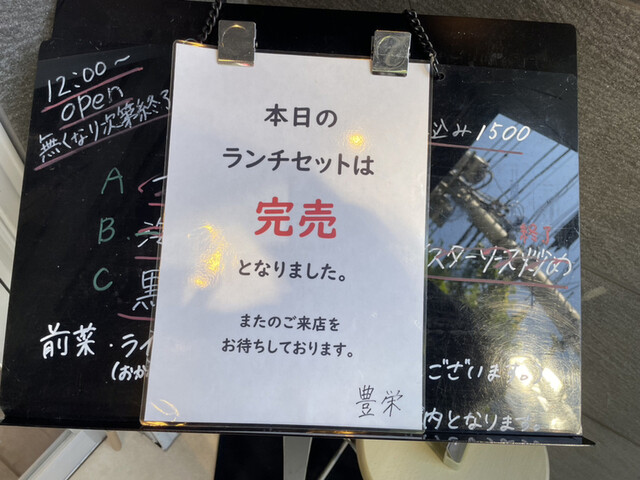 12:00〜
open
無くなり次第終了
A
B
C 黒
前菜・ライ
(おか
本日の
ランチセットは
完売
となりました。
またのご来店を
お待ちしております。
豊栄
込み1500
終了
スターソース炒め
ございます。
内となります。